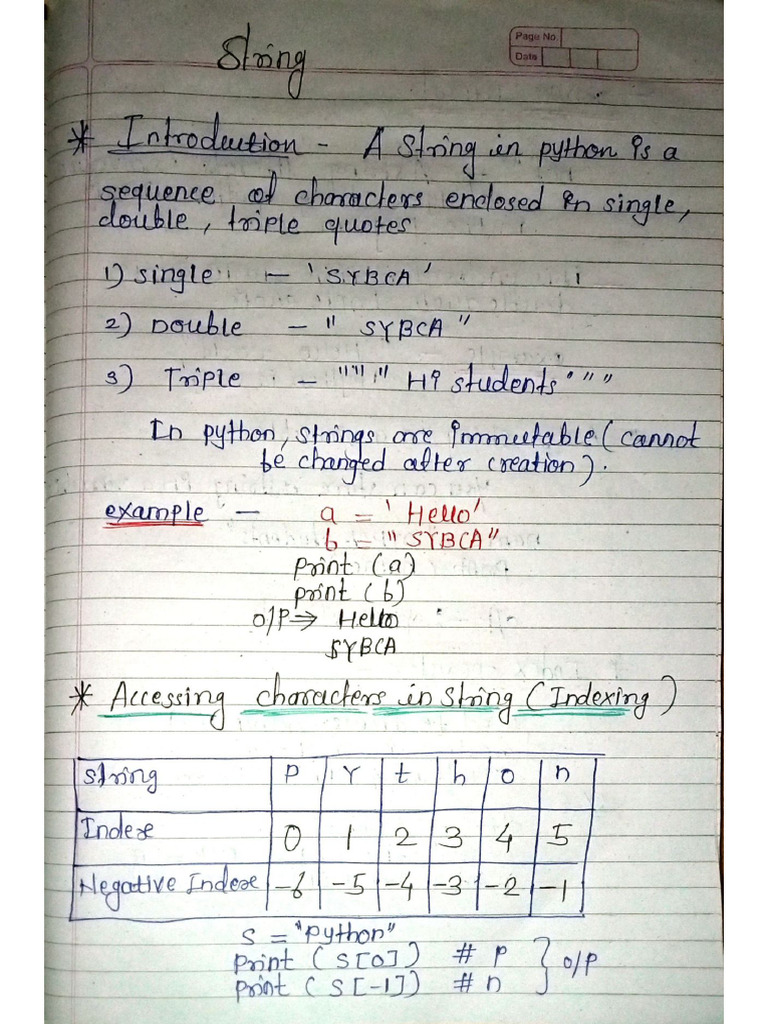 String
Page No.
Date
* Introduction - A string in python is a
sequence of characters enclosed in single,
double, triple quotes
1) single - 'SYBCA'
2) Double - " SYBCA "
3) Triple - """ Hi students """
In python, strings are immutable (cannot
be changed after creation).
example - a = 'Hello'
b = "SYBCA"
print (a)
print (b)
O/P ⇒ Hello
SYBCA
* Accessing characters in string (Indexing)
String P Y t h o n
Index 0 1 2 3 4 5
Negative Index -6 -5 -4 -3 -2 -1
S = "Python"
print (S[0]) # P
print (S[-1]) # n } O/P